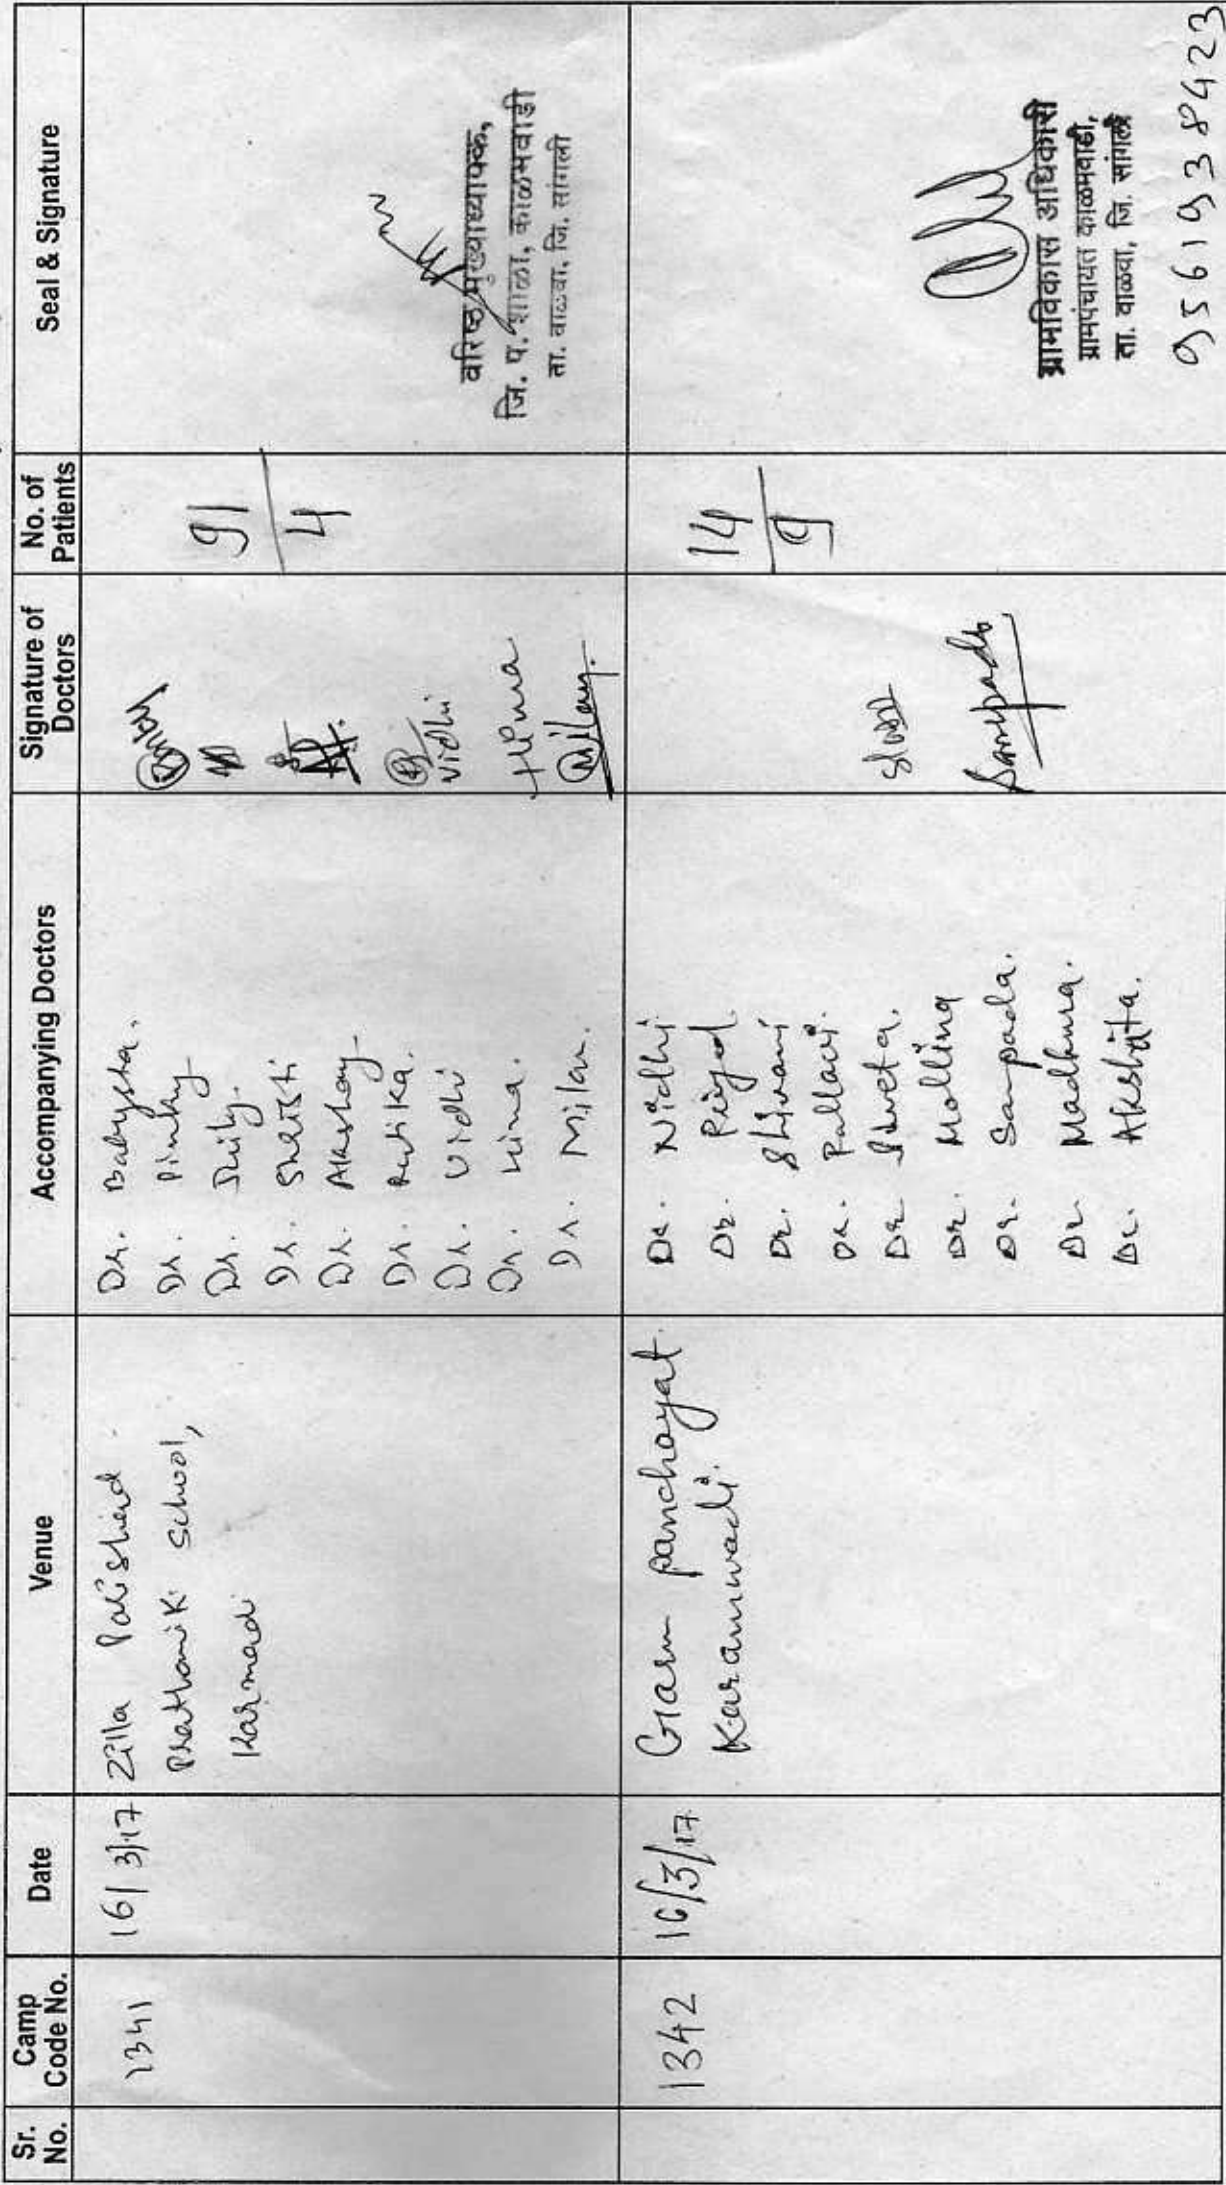 Sr. No.
Camp Code No.
Date
Venue
Accompanying Doctors
Signature of Doctors
No. of Patients
Seal & Signature
1341
16/3/17
Zilla Parishad
Prathamik School,
Karmadi
Dr. Babysta.
Dr. Pinky
Dr.
Dr.
Dr. Akshay
Dr. Rutika.
Dr. Vidhi
Dr. Hina.
Dr. Milan.
Vidhi
Hina
Milan.
91
4
वरिष्ठ मुख्याध्यापक,
जि. प. शाळा, काळमवाडी
ता. वाळवा, जि. सांगली
1342
16/3/17
Gram panchayat
Karamwadi.
Dr. Nidhi
Dr.
Dr. Shivani
Dr. Pallavi.
Dr Shweta.
Dr. Mollina
Dr. Sampada.
Dr Madhura.
Dr. Akshata.
Sampada
14
9
ग्रामविकास अधिकारी
ग्रामपंचायत काळमवाडी,
ता. वाळवा, जि. सांगली
9561938423